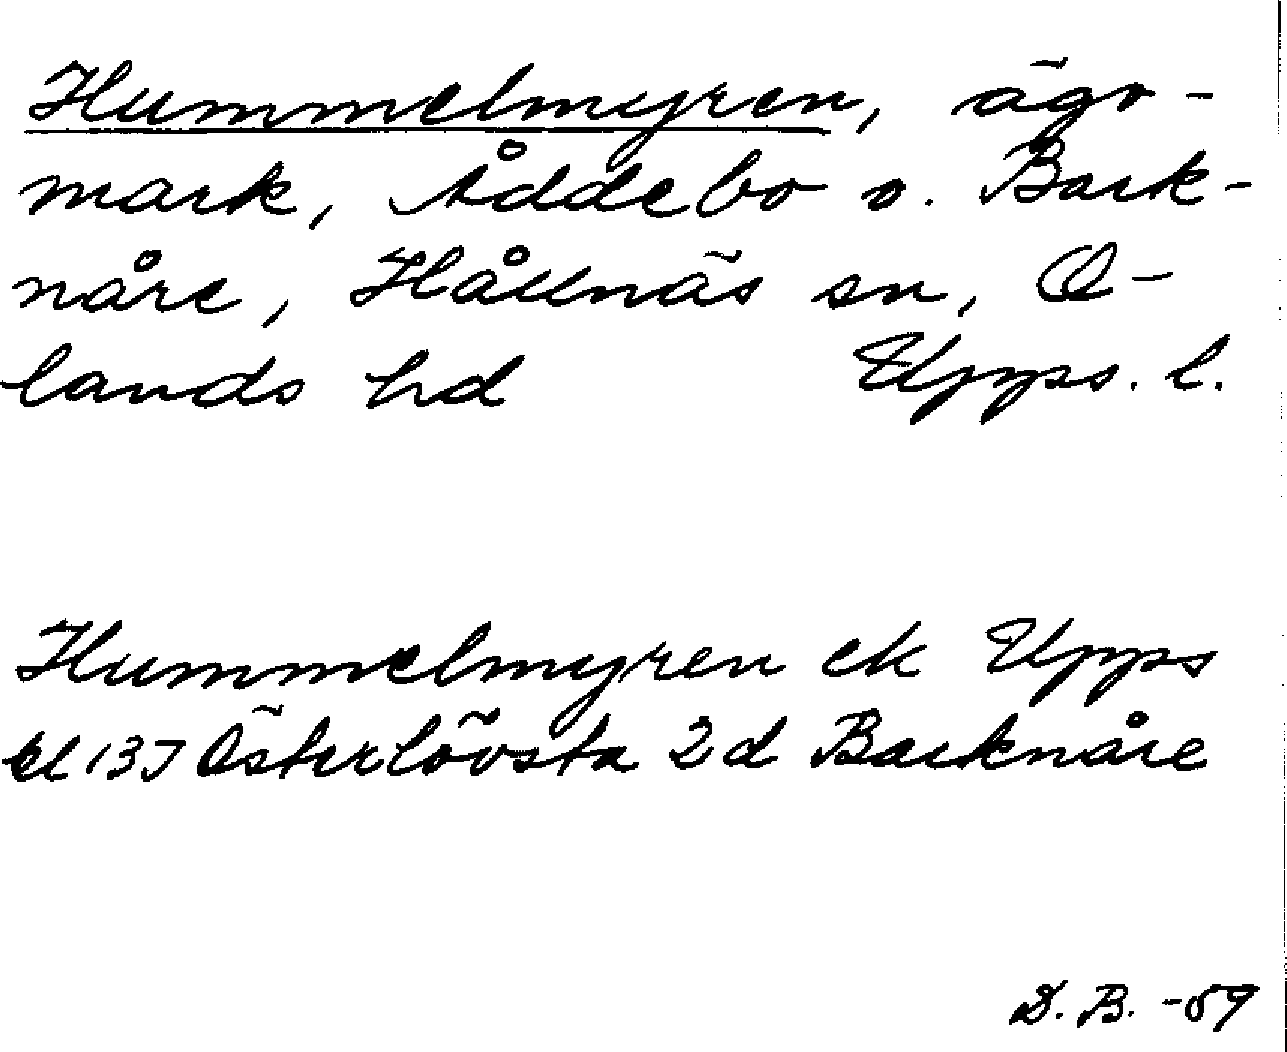 Hummelmyren, ägo-
mark, Åddebo o. Back-
nåre, Hållnäs sn, O-
lands hd Upps. l.
Hummelmyren ek Upps
bl 13J Österlövsta 2d Backnåre
D. B. -59